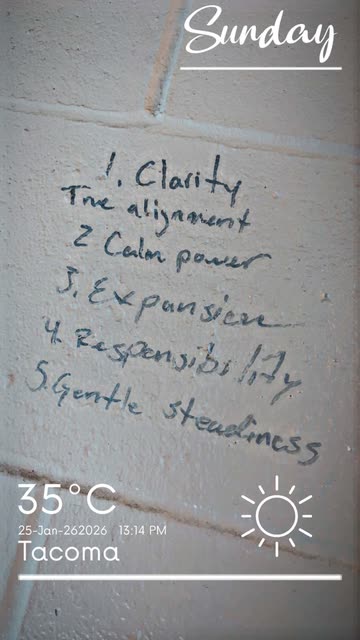 Sunday
1. Clarity
True alignment
2 Calm power
3. Expansion
4. Responsibility
5. Gentle steadiness
35°C
25-Jan-262026 13:14 PM
Tacoma